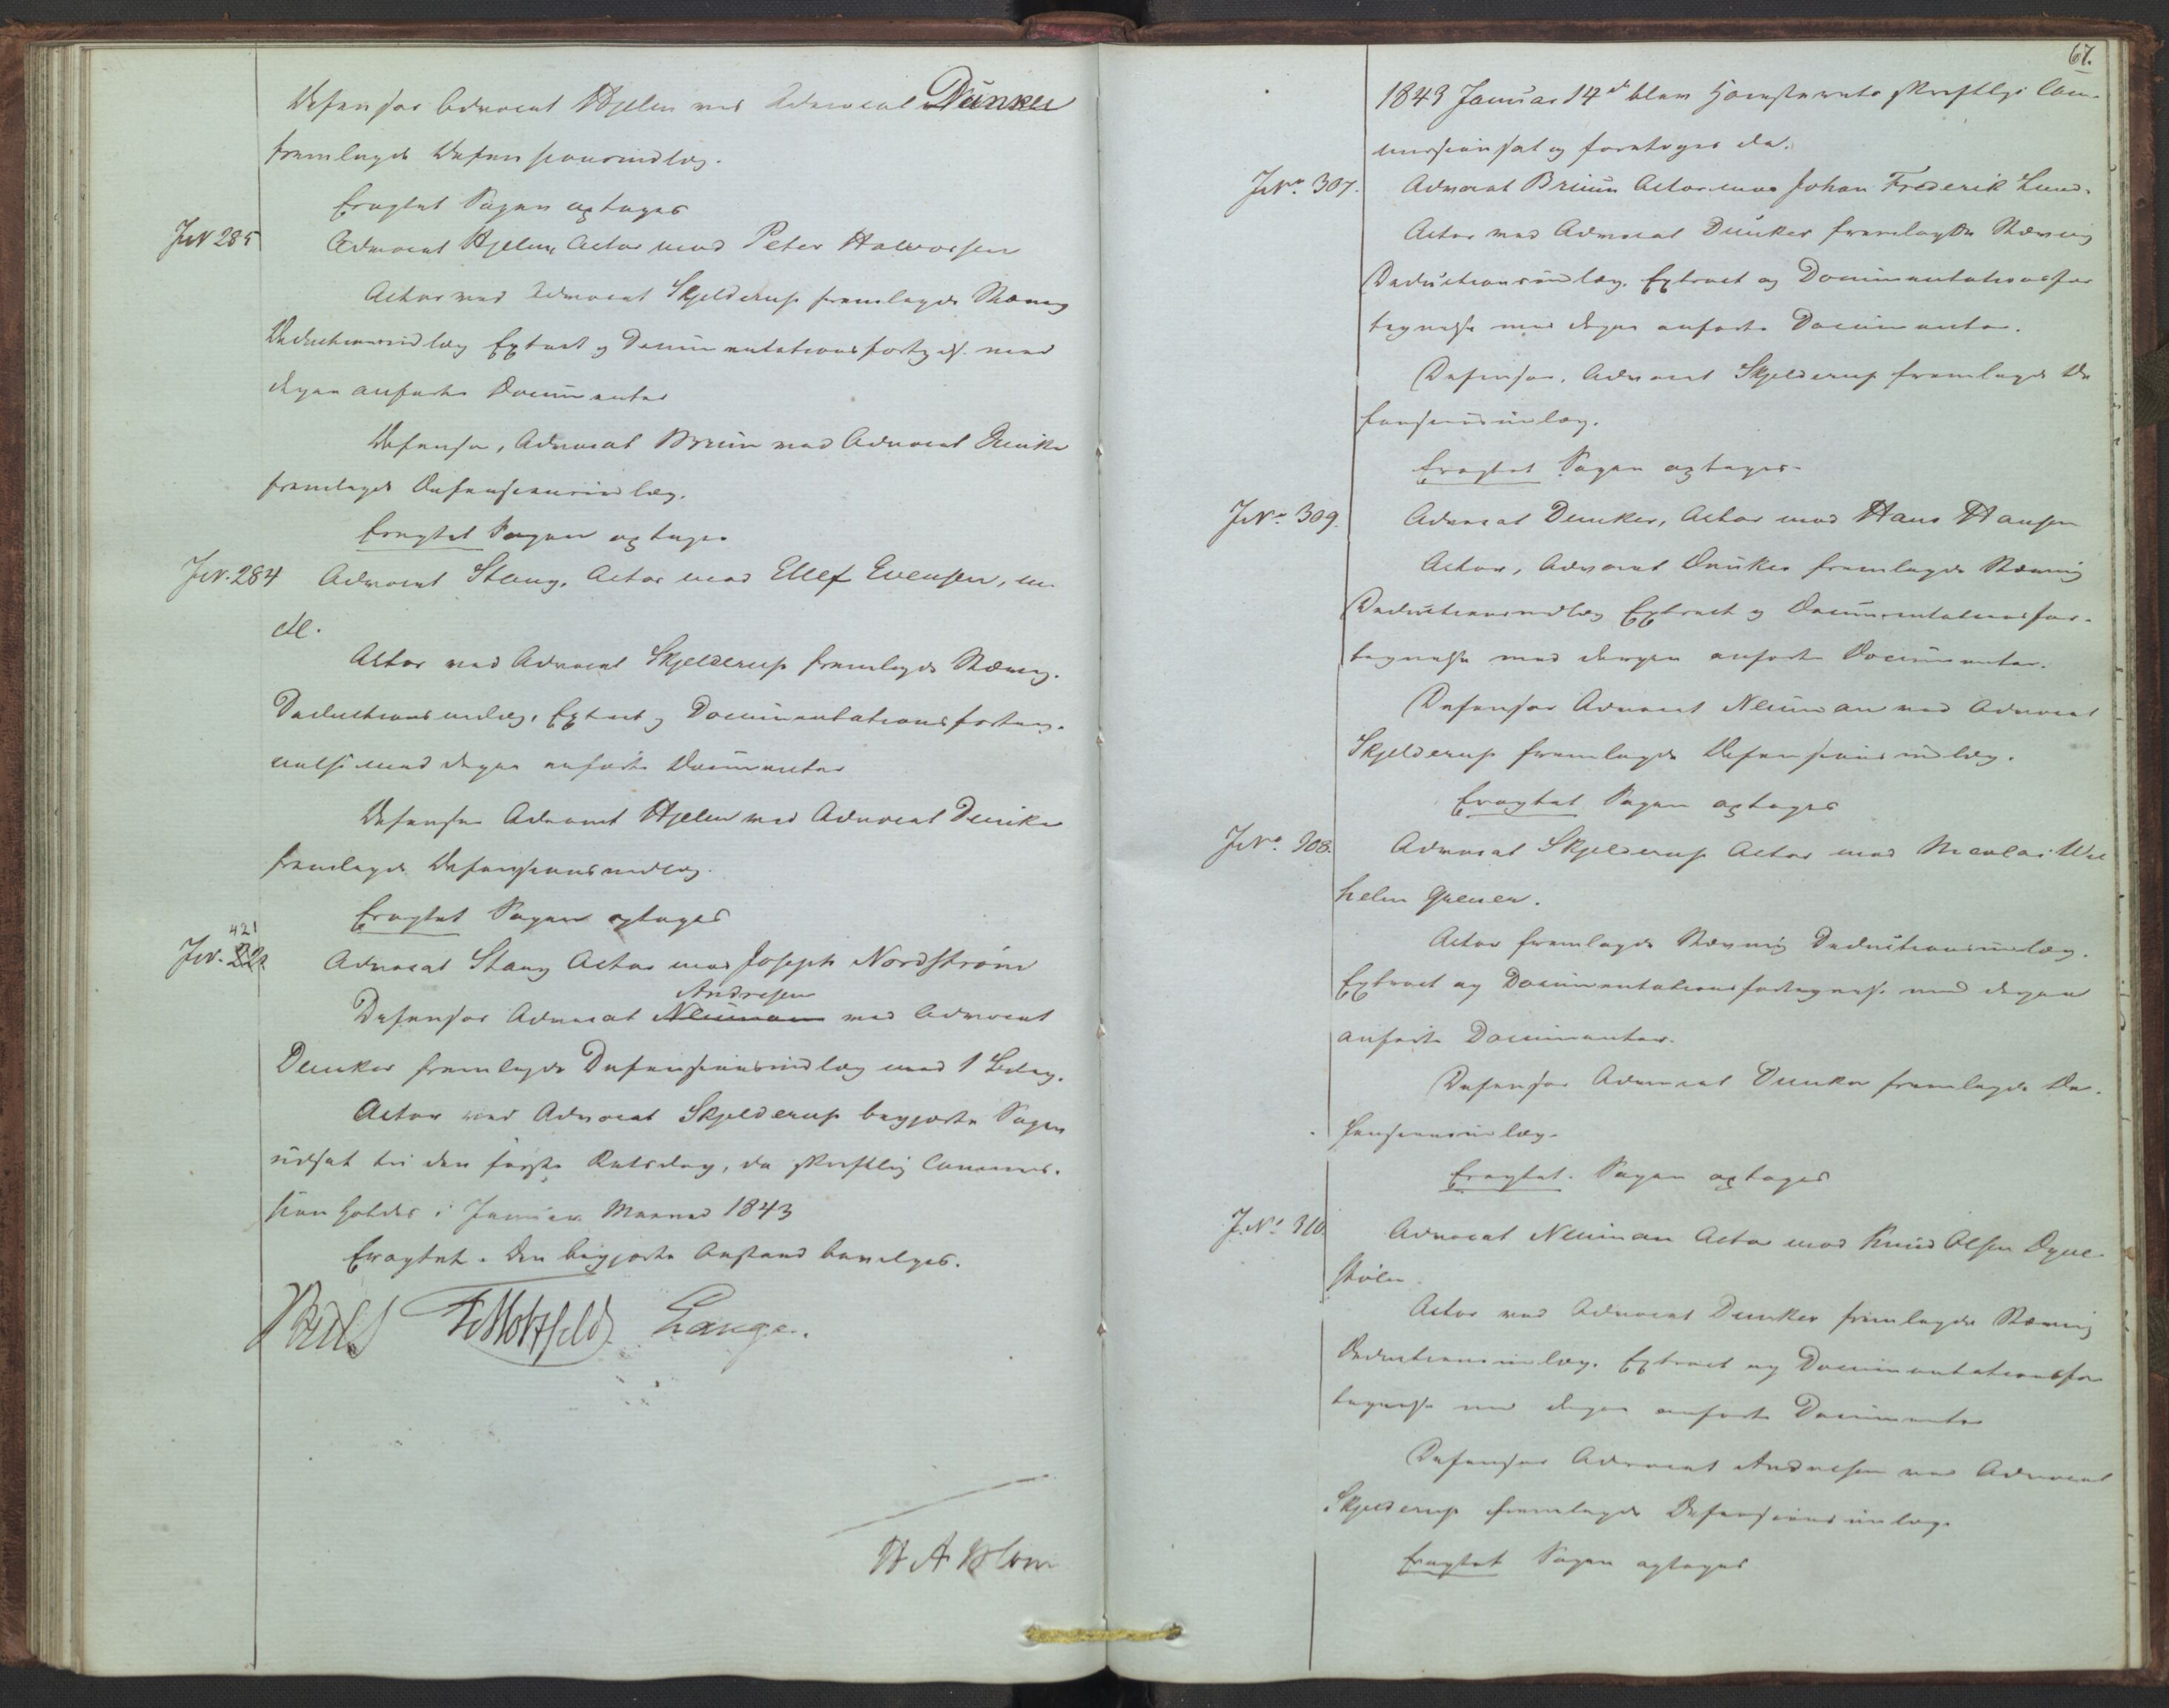 Defensor Advocat Hjelm ved Advocat Dunker
fremlagde Defensionsindlæg.
Eragtet Sagen optages
JN 285
Advocat Hjelm, Actor mod Peter Halvorsen
Actor ved Advocat Skjelderup fremlagde Stævning
Deductionsindlæg Extract og Documentationsfortegnelse med
deri anførte Documenter
Defensor, Advocat Bruun ved Advocat Dunker
fremlagde Defensionsindlæg.
Eragtet Sagen optages
JN. 284 Advocat Stang, Actor mod Ellef Evensen, m.
fl.
Actor ved Advocat Skjelderup fremlagde Stævning.
Deductionsindlæg, Extract og Documentationsforteg-
nelse med deri anførte Documenter
Defensor Advocat Hjelm ved Advocat Dunker
fremlagde Defensionsindlæg.
Eragtet Sagen optages
421
JN. Advocat Stang Actor mod Joseph Nordstrøm
Andresen
Defensor Advocat Neuman ved Advocat
Dunker fremlagde Defensionsindlæg med 1 Bilag.
Actor ved Advocat Skjelderup begjærte Sagen
udsat til den første Retsdag, da skriftlig
holdes i Januar Maaned 1843
Eragtet. Den begjærte Anstand bevilges.
Motzfeldt Lange.
H A Blom
67.
1843 Januar 14de blev Høiesterets skriftlige
sat og foretoges da.
JNo. 307. Advocat Bruun Actor mod Johan Frederik Lund.
Actor ved Advocat Dunker fremlagde Stævning
Deductionsindlæg, Extract og Documentationsfor
tegnelse med deri anførte Documenter.
Defensor, Advocat Skjelderup fremlagde De
fensionsindlæg.
Eragtet Sagen optages.
JNo. 309. Advocat Dunker, Actor mod Hans Hansen
Actor, Advocat Dunker fremlagde Stævning
Deductionsindlæg Extract og Documentationsfor-
tegnelse med deri anførte Documenter.
Defensor Advocat Neuman ved Advocat
Skjelderup fremlagde Defensionsindlæg.
Eragtet Sagen optages
JNo. 308. Advocat Skjelderup Actor mod Nicolai Wil
helm Greuer.
Actor fremlagde Stævning Deductionsindlæg.
Extract og Documentationsfortegnelse med deri
anførte Documenter.
Defensor Advocat Dunker fremlagde De-
fensionsindlæg.
Eragtet. Sagen optages
J.No. 310. Advocat Neuman Actor mod Knud Olsen

Actor ved Advocat Dunker fremlagde Stævning
Deductionsindlæg. Extract og Documentationsfor
tegnelse med deri anførte Documenter
Defensor Advocat Andresen ved Advocat
Skjelderup fremlagde Defensionsindlæg
Eragtet Sagen optages